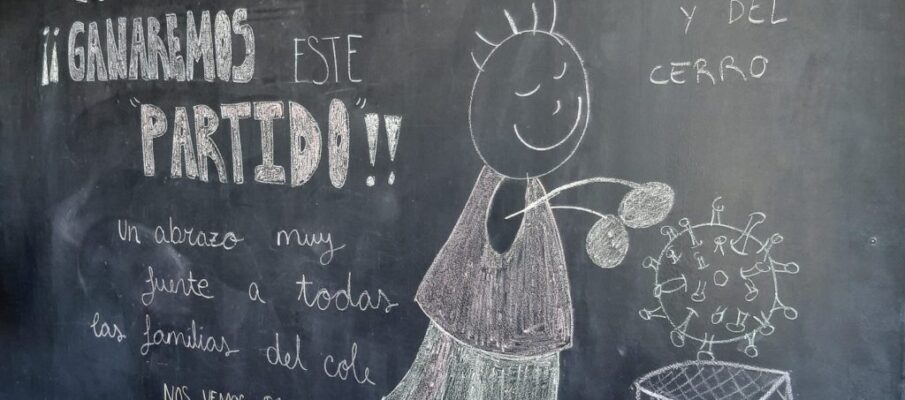 ¡¡GANAREMOS ESTE
"PARTIDO"!!
Un abrazo muy
fuerte a todas
las familias del cole
NOS VEMOS
Y DEL
CERRO